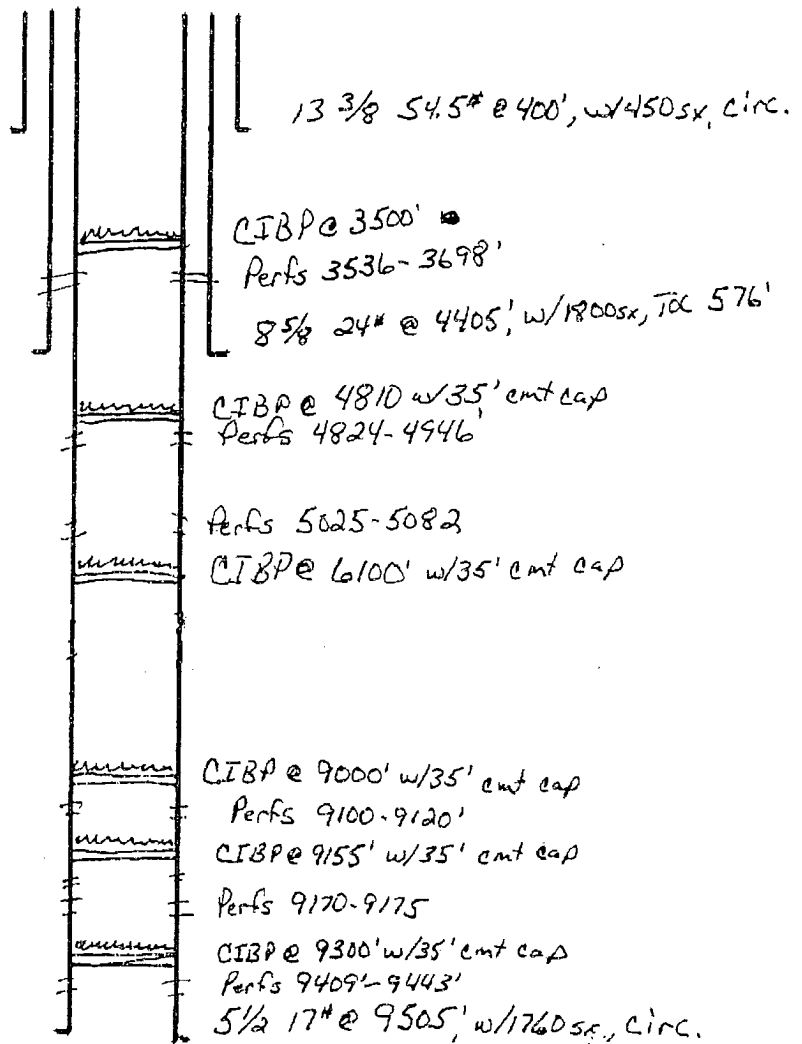 13 3/8 54.5# @ 400', w/450sx, circ.
CIBP @ 3500'
Perfs 3536-3698'
8 5/8 24# @ 4405', w/1800sx, TOC 576'
CIBP @ 4810 w/35' cmt cap
Perfs 4824-4946'
Perfs 5025-5082
CIBP @ 6100' w/35' cmt cap
CIBP @ 9000' w/35' cmt cap
Perfs 9100-9120'
CIBP @ 9155' w/35' cmt cap
Perfs 9170-9175
CIBP @ 9300' w/35' cmt cap
Perfs 9409'-9443'
5 1/2 17# @ 9505', w/1760sx., circ.